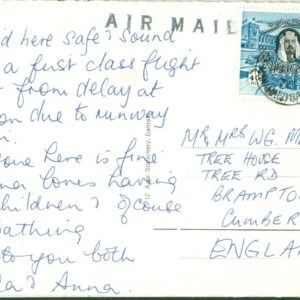 AIR MAIL
d here safe & sound
a first class flight
from delay at
on due to runway
one here is fine
loves having
children & of course
bathing
to you both
Anna
Al Hilal Stationery, Bahrain
MR, MRS WG.
TREE HOUSE
TREE RD
BRAMPTO
CUMBER
ENGLA